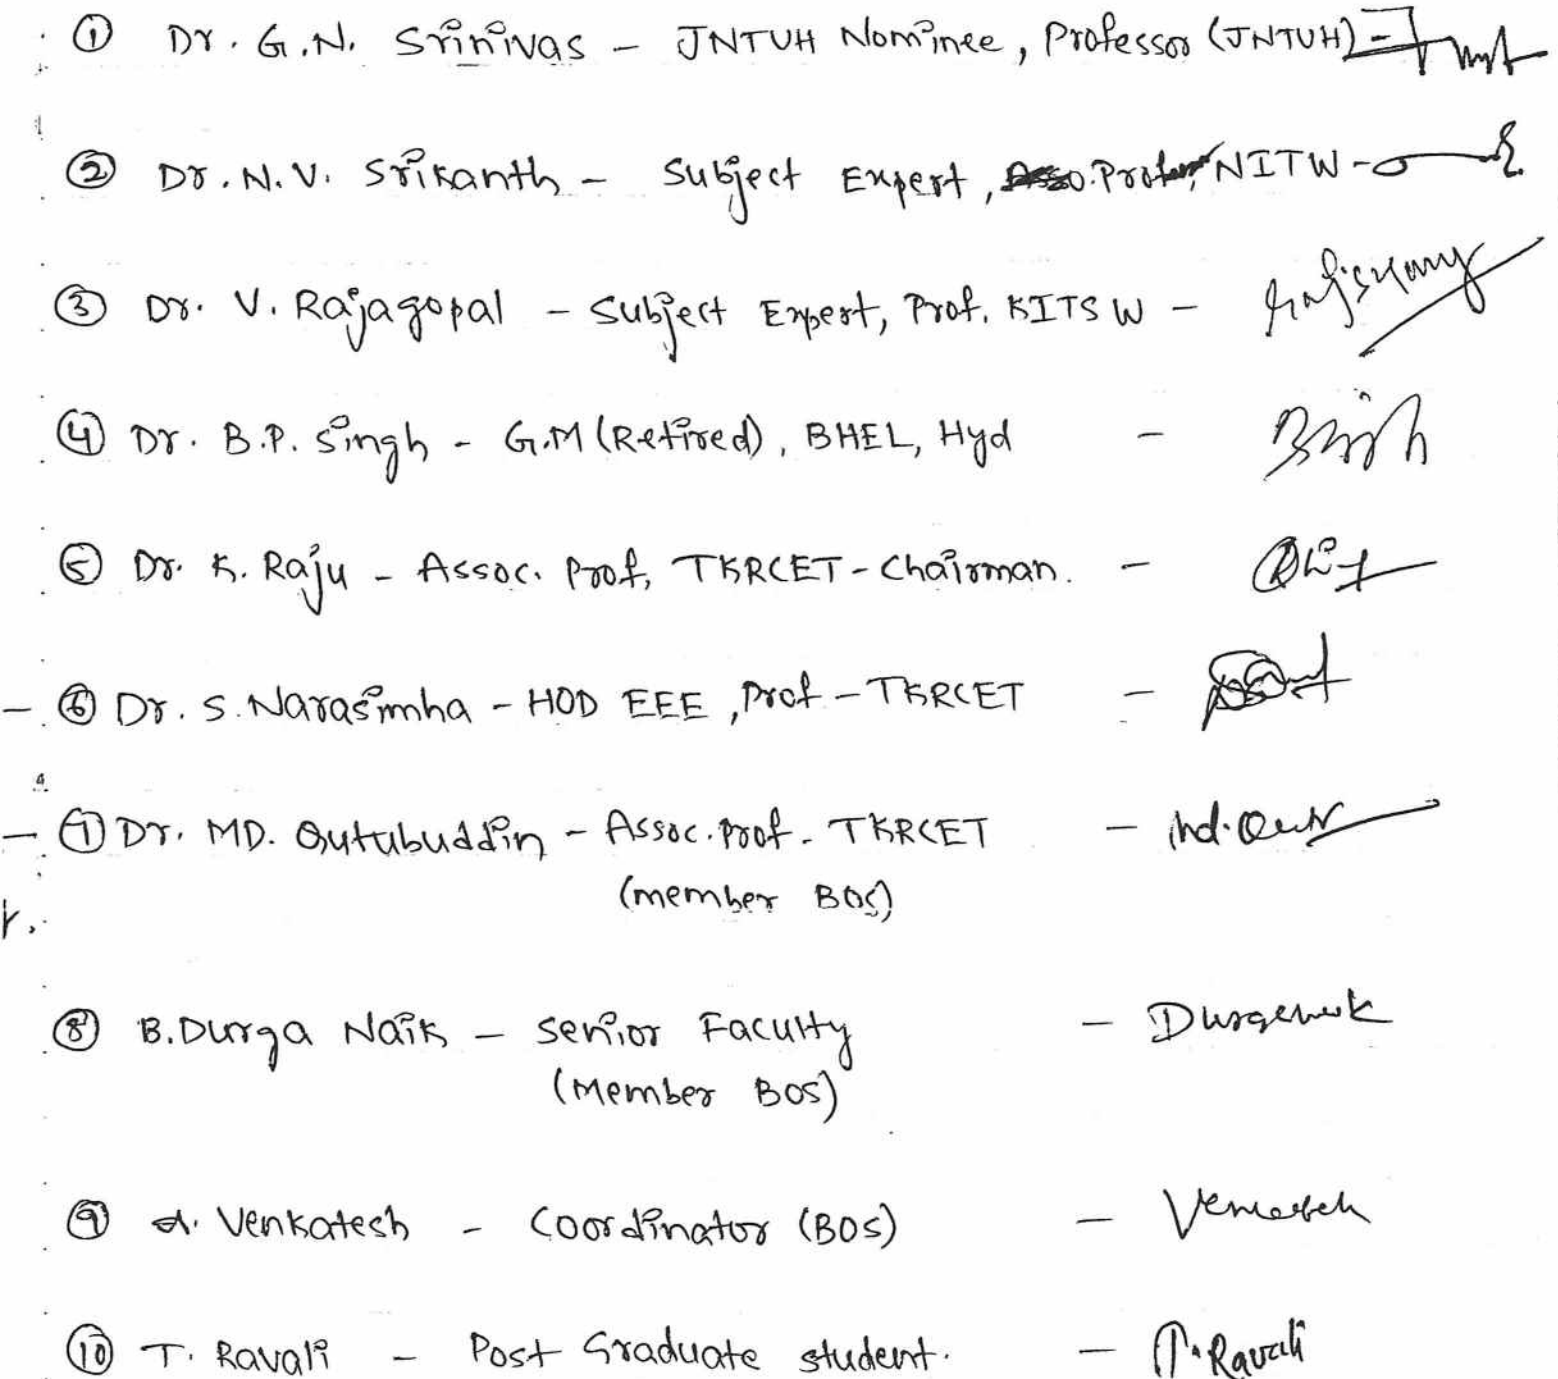 ① Dr. G.N. Srinivas - JNTUH Nominee, Professor (JNTUH) -
② Dr. N.V. Srikanth - Subject Expert, NITW -
③ Dr. V. Rajagopal - Subject Expert, Prof. KITS W -
④ Dr. B.P. Singh - G.M (Retired), BHEL, Hyd -
⑤ Dr. K. Raju - Assoc. Prof, TKRCET - Chairman. -
⑥ Dr. S. Narasimha - HOD EEE, Prof - TKRCET -
⑦ Dr. MD. Qutubuddin - Assoc. Prof. TKRCET -
(member BOS)
⑧ B. Durga Naik - Senior Faculty -
(Member BOS)
⑨ Venkatesh - Coordinator (BOS) -
⑩ T. Ravali - Post Graduate student. - T. Ravali